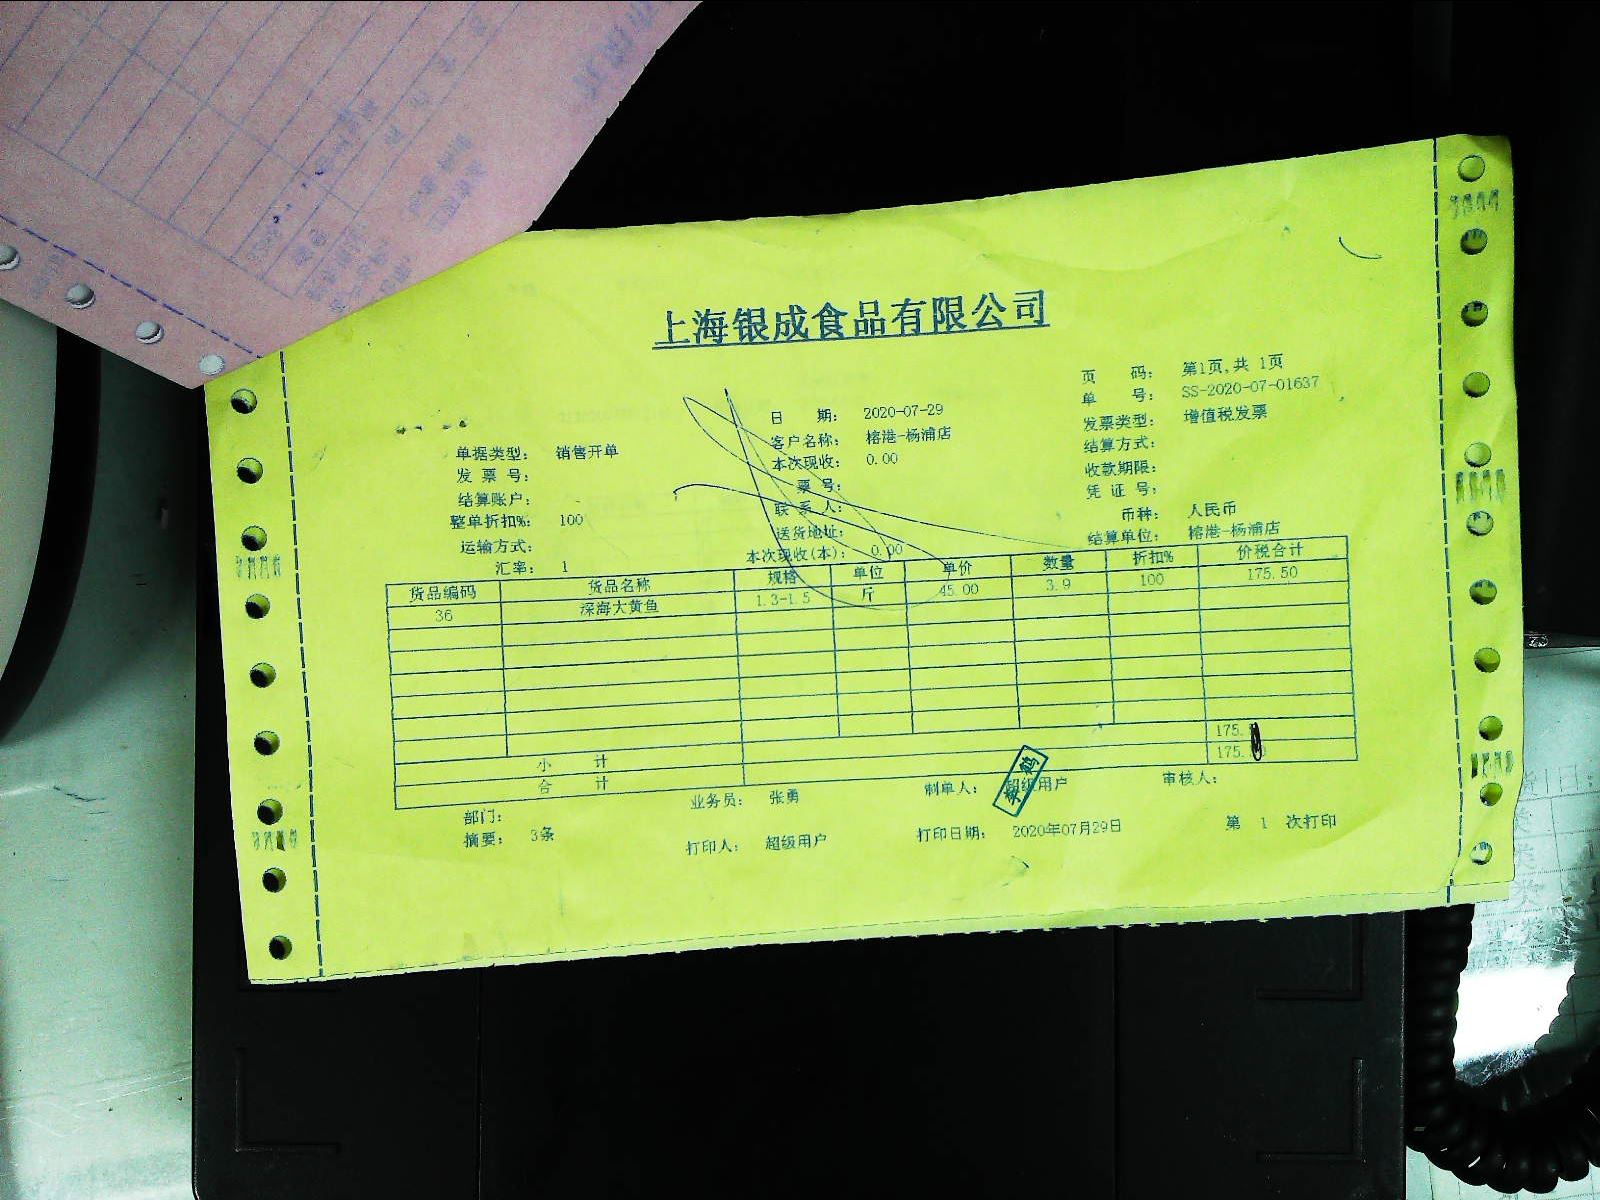 上海银成食品有限公司
页 码: 第1页,共 1页
单 号: SS-2020-07-01637
日 期: 2020-07-29
发票类型: 增值税发票
单据类型: 销售开单
客户名称: 榕港-杨浦店
结算方式:
发 票 号:
本次现收: 0.00
收款期限:
结算账户:
票号:
凭 证 号:
整单折扣%: 100
联 系 人:
币种: 人民币
运输方式:
送货地址:
结算单位: 榕港-杨浦店
汇率: 1
本次现收(本): 0.00
货品编码 货品名称 规格 单位 单价 数量 折扣% 价税合计
36 深海大黄鱼 1.3-1.5 斤 45.00 3.9 100 175.50
小 计 175.
合 计 175.
部门:
业务员: 张勇
制单人: 超级用户
审核人:
摘要: 3条
打印人: 超级用户
打印日期: 2020年07月29日
第 1 次打印